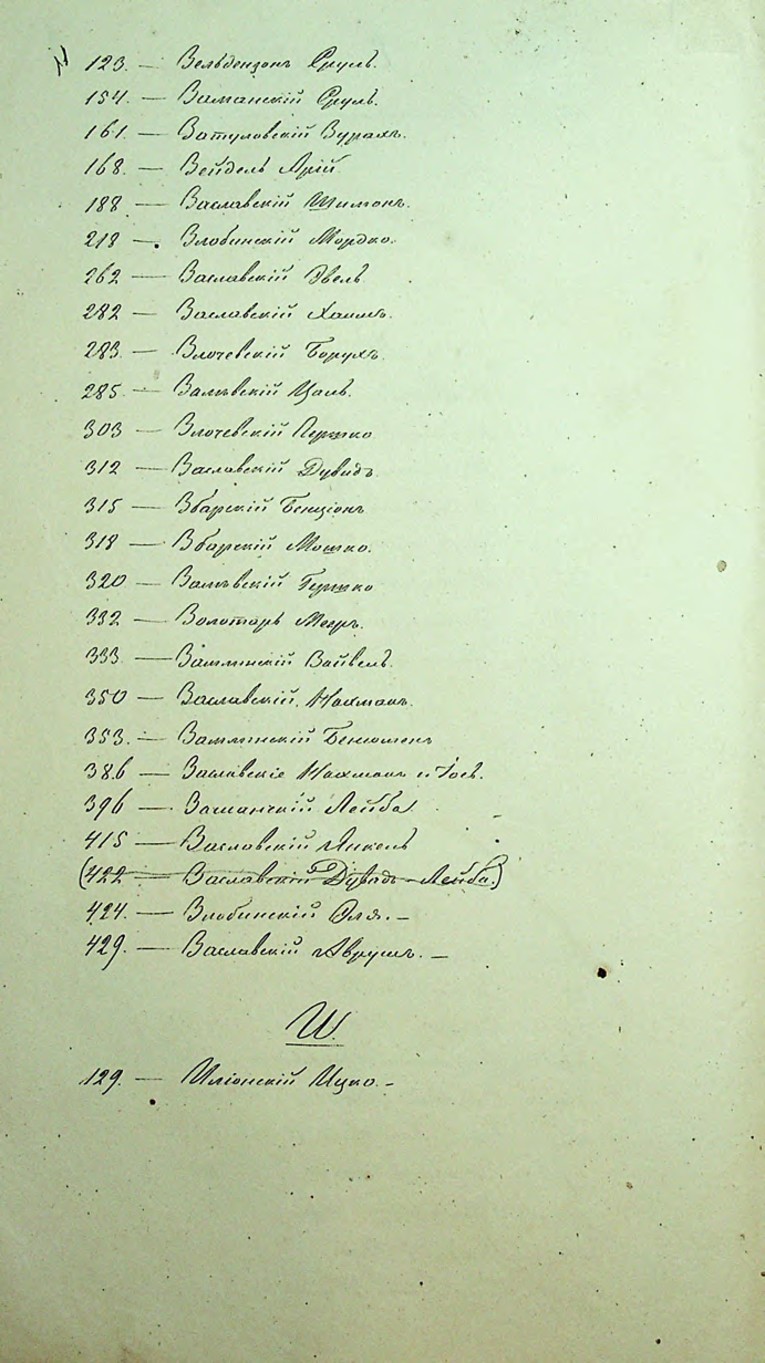 123. — Зельбензонъ Сруль.
154. — Заманскій Сруль.
161. — Затуловскій Зурахъ.
168. — Зейдель Арій.
188 — Заславскій Шимонъ.
218 — Злобинскій Мордко.
262 — Заславскій Эвель
282 — Заславскій Хаимъ.
283. — Злочевскій Борухъ.
285. — Залѣвскій Цаль.
303 — Злочевскій Гершко
312 — Заславскій Дувидъ
315 — Збарскій Бенціонъ
318 — Збарскій Мошко.
320 — Залѣвскій Гершко
332 — Золотарь Меиръ.
333. — Замлинскій Зайвель.
350 — Заславскій Нахманъ.
353. — Замлинскій Бенюменъ
386 — Заславскіе Нахманъ и
396 — Заманскій Лейба.
415 — Засловскій Янкель
(422 — Заславскій Дувидъ-Лейба.)
424. — Злобинскій Эля. —
429. — Заславскій Аврумъ. —
И.
129. — Иліонскій Ицко. —